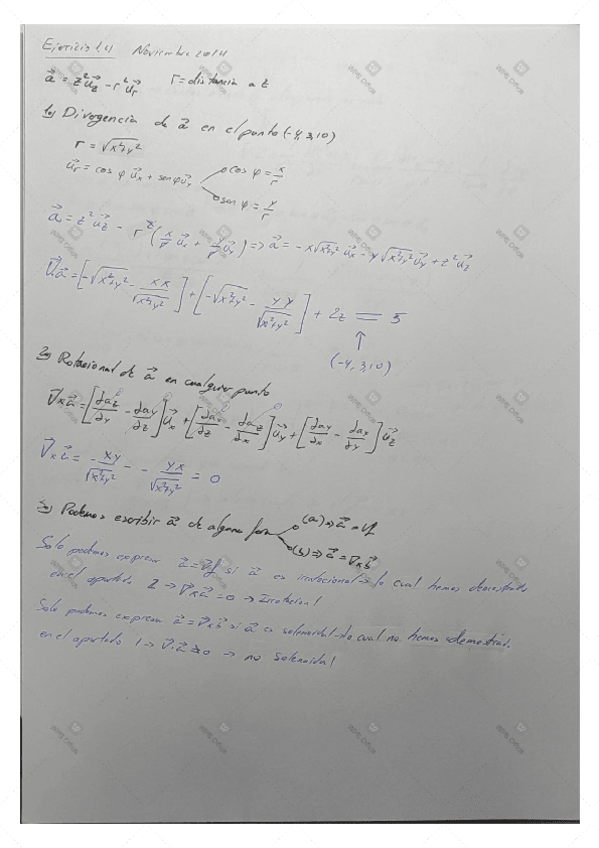 Ejercicio 1.4 Noviembre 2014
a⃗ = z²u⃗z - r²u⃗r r = distancia a z
1) Divergencia de a⃗ en el punto (-4,3,10)
r = √x²+y²
u⃗r = cos φ u⃗x + sen φ u⃗y
cos φ = x/r
sen φ = y/r
a⃗ = z²u⃗z - r²(x/r u⃗x + y/r u⃗y) => a⃗ = -x√x²+y² u⃗x - y√x²+y² u⃗y + z²u⃗z
∇⃗a⃗ = [-√x²+y² - xx/√x²+y²] + [-√x²+y² - yy/√x²+y²] + 2z = 5
↑
(-4,3,10)
2) Rotacional de a⃗ en cualquier punto
∇⃗×a⃗ = [∂az/∂y - ∂ay/∂z]u⃗x + [∂ax/∂z - ∂az/∂x]u⃗y + [∂ay/∂x - ∂ax/∂y]u⃗z
∇⃗×a⃗ = -xy/√x²+y² - - yx/√x²+y² = 0
3) Podemos escribir a⃗ de alguna forma
(a) => a⃗ = ∇f
(b) => a⃗ = ∇×b⃗
Solo podemos expresar a⃗ = ∇⃗f si a⃗ es irrotacional → lo cual hemos demostrado
en el apartado 2 → ∇⃗×a⃗ = 0 → Irrotacional
Solo podemos expresar a⃗ = ∇⃗×b⃗ si a⃗ es solenoidal → lo cual no hemos demostrado.
en el apartado 1 → ∇⃗·a⃗ ≠ 0 → no solenoidal